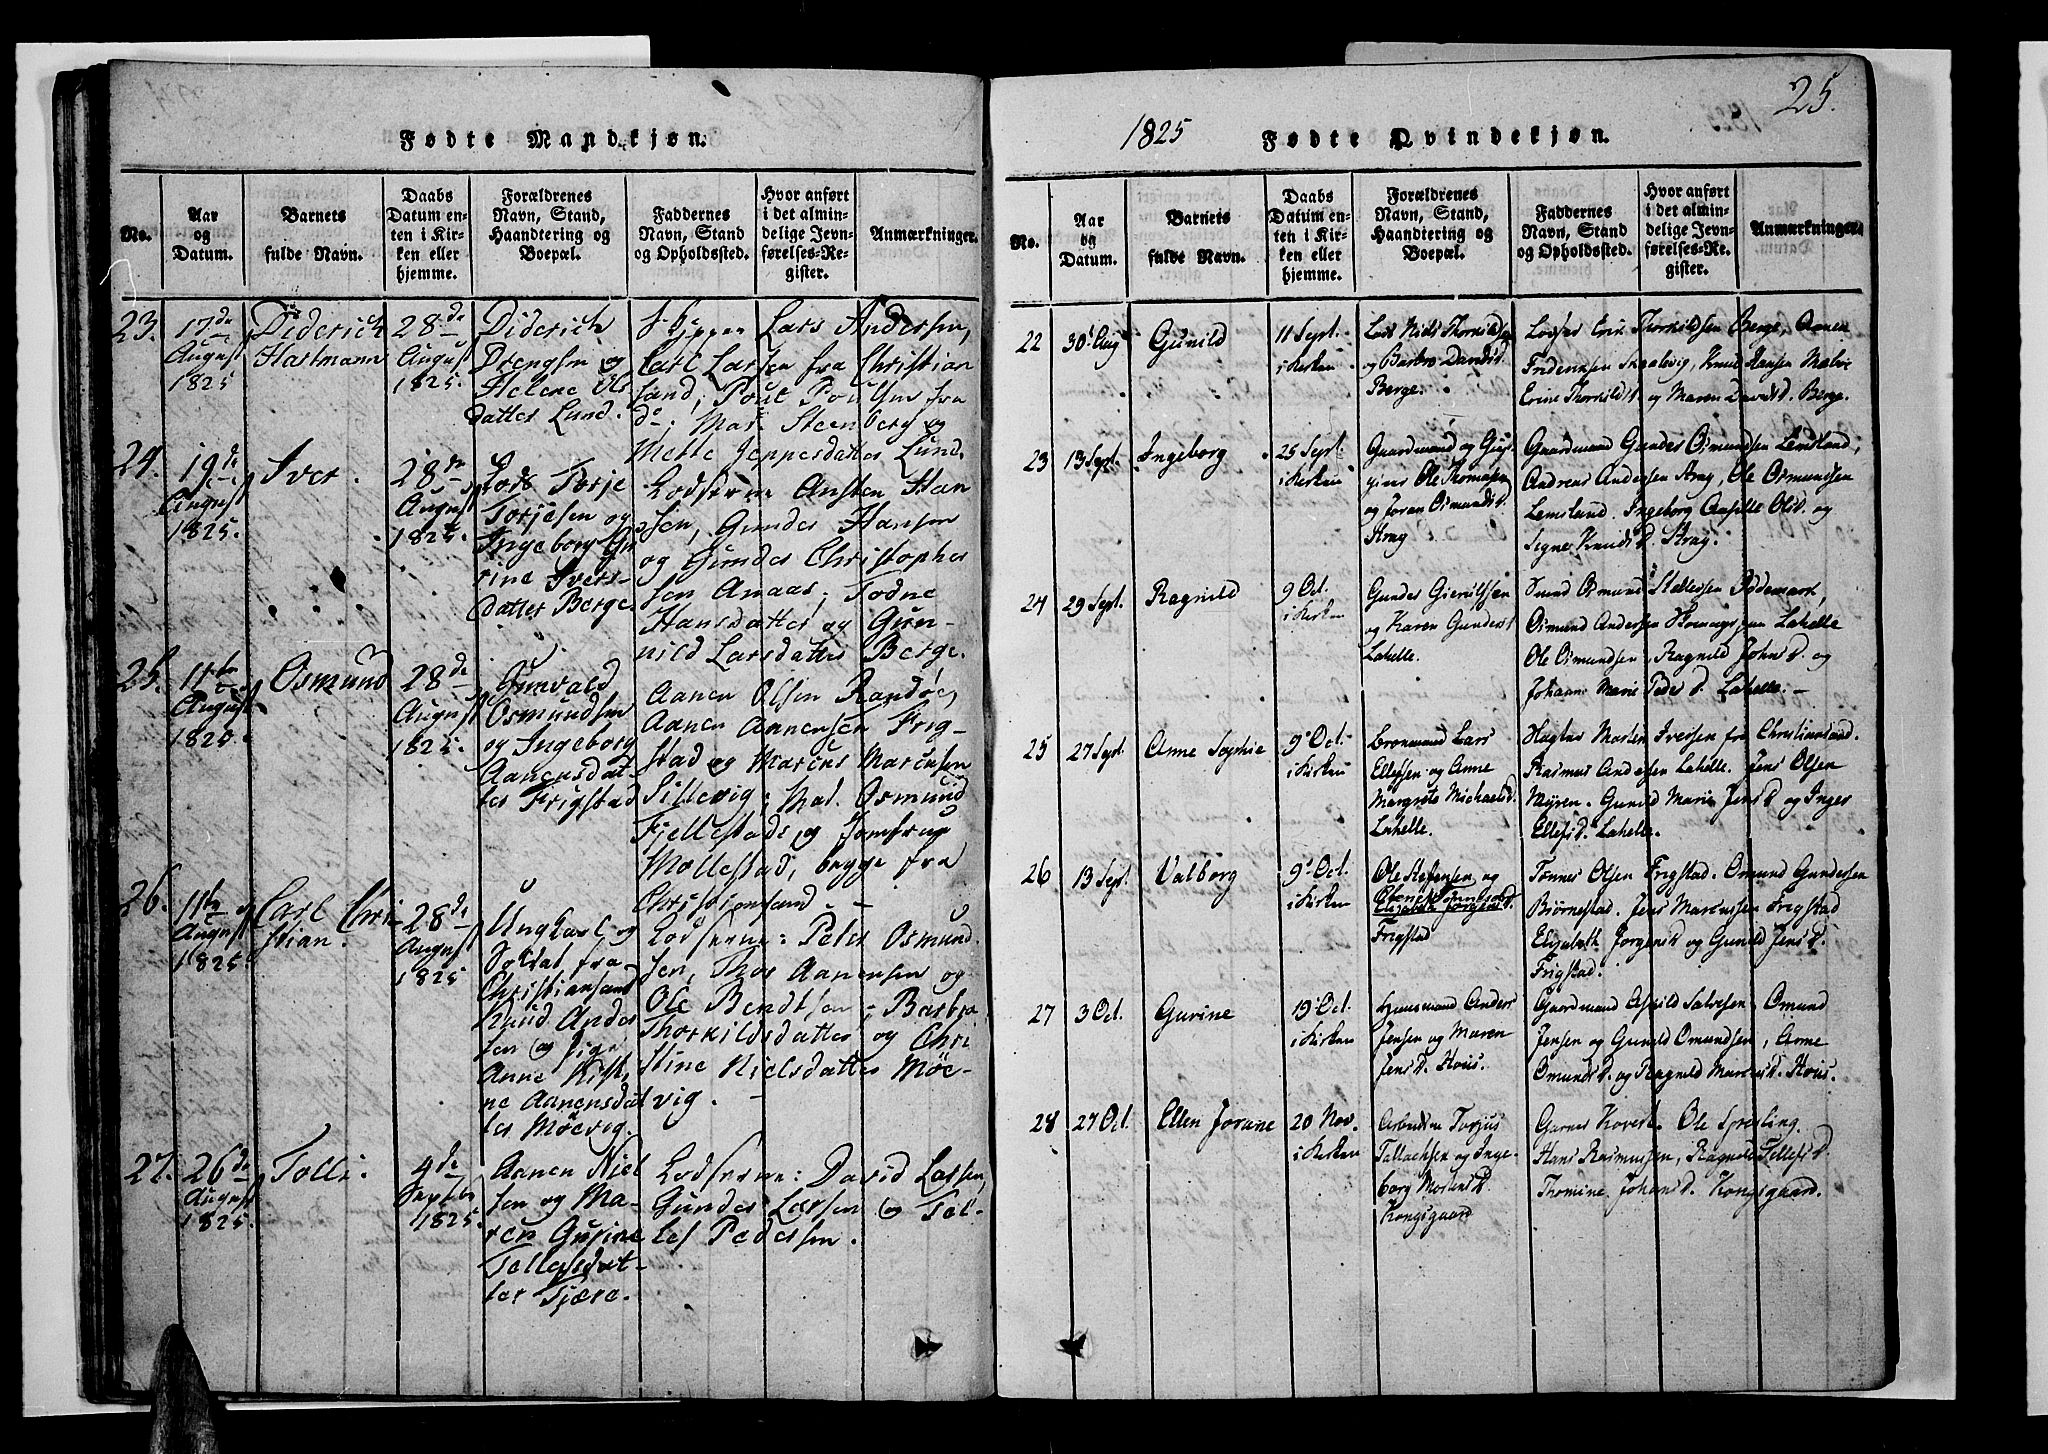 Fødte Mandkjøn.
No.
Aar
og
Datum.
Barnets
fulde Navn.
Daabs
Datum en-
ten i Kir-
ken eller
hjemme.
Forældrenes
Navn, Stand,
Haandtering og
Boepæl.
Faddernes
Navn, Stand
og Opholdssted.
Hvor anført
i det almin-
delige Jevn-
førelses-Re-
gister.
Anmærkninger.
23.
17de
August
1825
Diderich
Hartmann
28de
August
1825.
Diderich
Drengsen og
Helene Ols
datter Lund.
Skipper Lars Andersen,
Carl Larsen fra Christian
sand, Poul Poulsen fra
do; Mar. Steenberg og
Mette Jeppesdatter Lund.
24.
19de
August
1825.
Iver.
28de
August
1825.
Lods Torje
Torjesen og
Ingeborg Gu
rine Ivers-
datter Berge.
Lodserne Ansten Han
sen, Gunder Hansen
og Gunder Christopher
sen Anaas; Todne
Hansdatter og Gun-
nild Larsdatter Berge.
25.
11te
August
1825.
Osmund
28de
August
1825.
Gunvald
Osmundsen
og Ingeborg
Aanensdat-
ter Frigstad
Aanen Olsen Randøe,
Aanen Aanensen Frig-
stad og Marcus Marcussen
Sillevig; Mad. Osmund
Fjellestads og Jomfrue
Mollestad, begge fra
Christiansand. -
26.
11te
August
1825.
Carl Chri
stian.
28de
August
1825
Ungkarl og
Soldat fra
Christiansand
Knud Ander
sen og Pige
Anne Kirsti
ne Aanensdat
ter Møevig.
Lodserne: Peter Osmund
sen, Thor Aanensen og
Ole Bendtsen; Barbra
Thorkildsdatter og Chri
stine Nielsdatter Møe-
vig. -
27.
26de
August
1825.
Tolli.
4de
Septbr
1825.
Aanen Niel
sen og Ma-
ren Gurine
Tellefsdat-
ter Tjære.
Lodserne: David Larsen,
Gunder Larsen og Tel-
lef Pedersen.
1825
Fødte Qvindekjøn.
25.
No.
Aar
og
Datum.
Barnets
fulde Navn.
Daabs
Datum en-
ten i Kir-
ken eller
hjemme.
Forældrenes
Navn, Stand,
Haandtering og
Boepæl.
Faddernes
Navn, Stand
og Opholdssted.
Hvor anført
i det almin-
delige Jevn-
førelses-Re-
gister.
Anmærkninger.
22
30 Aug
Gunild
11 Sept.
i Kirken
Lods Niels Thorkilds
og Barbro Davidsd.
Berge.
Lodser Erik Thorkildsen Berge, Aanen
Fredericksen Skaalevig, Knud Hansen Malvo
Erine Thorkildsd. og Maren Davidsd. Berge.
23
13 Sept.
Ingeborg
25 Sept.
i Kirken
Gaardmand og Giæst-
giver Ole Thomasen
og Joran Osmundsd.
Strag
Gaardmand Gunder Osmundsen Lemsland,
Andreas Andersen Strag, Ole Osmundsen
Lemsland. Ingeborg Aaselle Olsd. og
Signe Knudsd. Strag.
24
29 Sept.
Ragnild
9 Oct.
i Kirken
Gunder Gierulfsen
og Karen Gundersd.
Lahelle.
Svend Osmund Stellefsen Oddemark,
Osmund Andersen Lahelle
Ole Osmundsen, Ragnild Johnsd. og
Johanne Marie Pedersd. Lahelle. -
25
27 Sept.
Anne Sophie
9 Oct.
i Kirken
Lars
Ellefsen og Anne
Margrete Michaelsd.
Lahelle.
Morten Iversen fra Christiansand.
Rasmus Andersen Lahelle. Jens Olsen
Myren. Gunild Marie Jensd. og Inger
Ellefsd. Lahelle.
26
13 Sept.
Valborg
9 Oct.
i Kirken
Ole Steffensen og
Elizabeth Jorgensd.
Frigstad
Tønnes Olsen Frigstad. Omund Gundersen
Bjørnestad. Jens Marcussen Frigstad
Elizabeth Jorgensd. og Gunild Jensd.
Frigstad.
27
3 Oct.
Gurine
19 Oct.
i Kirken
Huusmand Anders
Jensen og Maren
Jensd. Houis.
Gaardmand Asbild Salvesen, Omund
Jensen og Gunuld Omundsen, Anne
Omundsd. og Ragnild Marcusd. Houis.
28
27 Oct.
Ellen Jorane
20 Nov.
i Kirken
Arbeidsm. Torjus
Tallachsen og Inge-
borg Mortensd.
Kongsgaard
Garver Ole Sperling.
Hans Rasmussen, Ragnild Tellefsd.
Thomine Johansd. Kongsgaard.